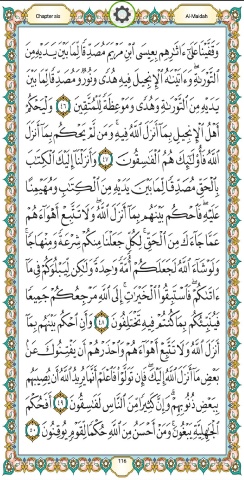 Chapter six
Al-Maidah
وَقَفَّيْنَا عَلَىٰٓ ءَاثَٰرِهِم بِعِيسَى ٱبْنِ مَرْيَمَ مُصَدِّقًا لِّمَا بَيْنَ يَدَيْهِ مِنَ
ٱلتَّوْرَىٰةِ وَءَاتَيْنَٰهُ ٱلْإِنجِيلَ فِيهِ هُدًى وَنُورٌ وَمُصَدِّقًا لِّمَا بَيْنَ
يَدَيْهِ مِنَ ٱلتَّوْرَىٰةِ وَهُدًى وَمَوْعِظَةً لِّلْمُتَّقِينَ ٤٦ وَلْيَحْكُمْ
أَهْلُ ٱلْإِنجِيلِ بِمَآ أَنزَلَ ٱللَّهُ فِيهِ وَمَن لَّمْ يَحْكُم بِمَآ أَنزَلَ
ٱللَّهُ فَأُو۟لَٰٓئِكَ هُمُ ٱلْفَٰسِقُونَ ٤٧ وَأَنزَلْنَآ إِلَيْكَ ٱلْكِتَٰبَ
بِٱلْحَقِّ مُصَدِّقًا لِّمَا بَيْنَ يَدَيْهِ مِنَ ٱلْكِتَٰبِ وَمُهَيْمِنًا
عَلَيْهِ فَٱحْكُم بَيْنَهُم بِمَآ أَنزَلَ ٱللَّهُ وَلَا تَتَّبِعْ أَهْوَآءَهُمْ
عَمَّا جَآءَكَ مِنَ ٱلْحَقِّ لِكُلٍّ جَعَلْنَا مِنكُمْ شِرْعَةً وَمِنْهَاجًا
وَلَوْ شَآءَ ٱللَّهُ لَجَعَلَكُمْ أُمَّةً وَٰحِدَةً وَلَٰكِن لِّيَبْلُوَكُمْ فِى مَآ
ءَاتَىٰكُمْ فَٱسْتَبِقُوا۟ ٱلْخَيْرَٰتِ إِلَى ٱللَّهِ مَرْجِعُكُمْ جَمِيعًا
فَيُنَبِّئُكُم بِمَا كُنتُمْ فِيهِ تَخْتَلِفُونَ ٤٨ وَأَنِ ٱحْكُم بَيْنَهُم بِمَآ
أَنزَلَ ٱللَّهُ وَلَا تَتَّبِعْ أَهْوَآءَهُمْ وَٱحْذَرْهُمْ أَن يَفْتِنُوكَ عَنۢ
بَعْضِ مَآ أَنزَلَ ٱللَّهُ إِلَيْكَ فَإِن تَوَلَّوْا۟ فَٱعْلَمْ أَنَّمَا يُرِيدُ ٱللَّهُ أَن يُصِيبَهُم
بِبَعْضِ ذُنُوبِهِمْ وَإِنَّ كَثِيرًا مِّنَ ٱلنَّاسِ لَفَٰسِقُونَ ٤٩ أَفَحُكْمَ
ٱلْجَٰهِلِيَّةِ يَبْغُونَ وَمَنْ أَحْسَنُ مِنَ ٱللَّهِ حُكْمًا لِّقَوْمٍ يُوقِنُونَ ٥٠
116